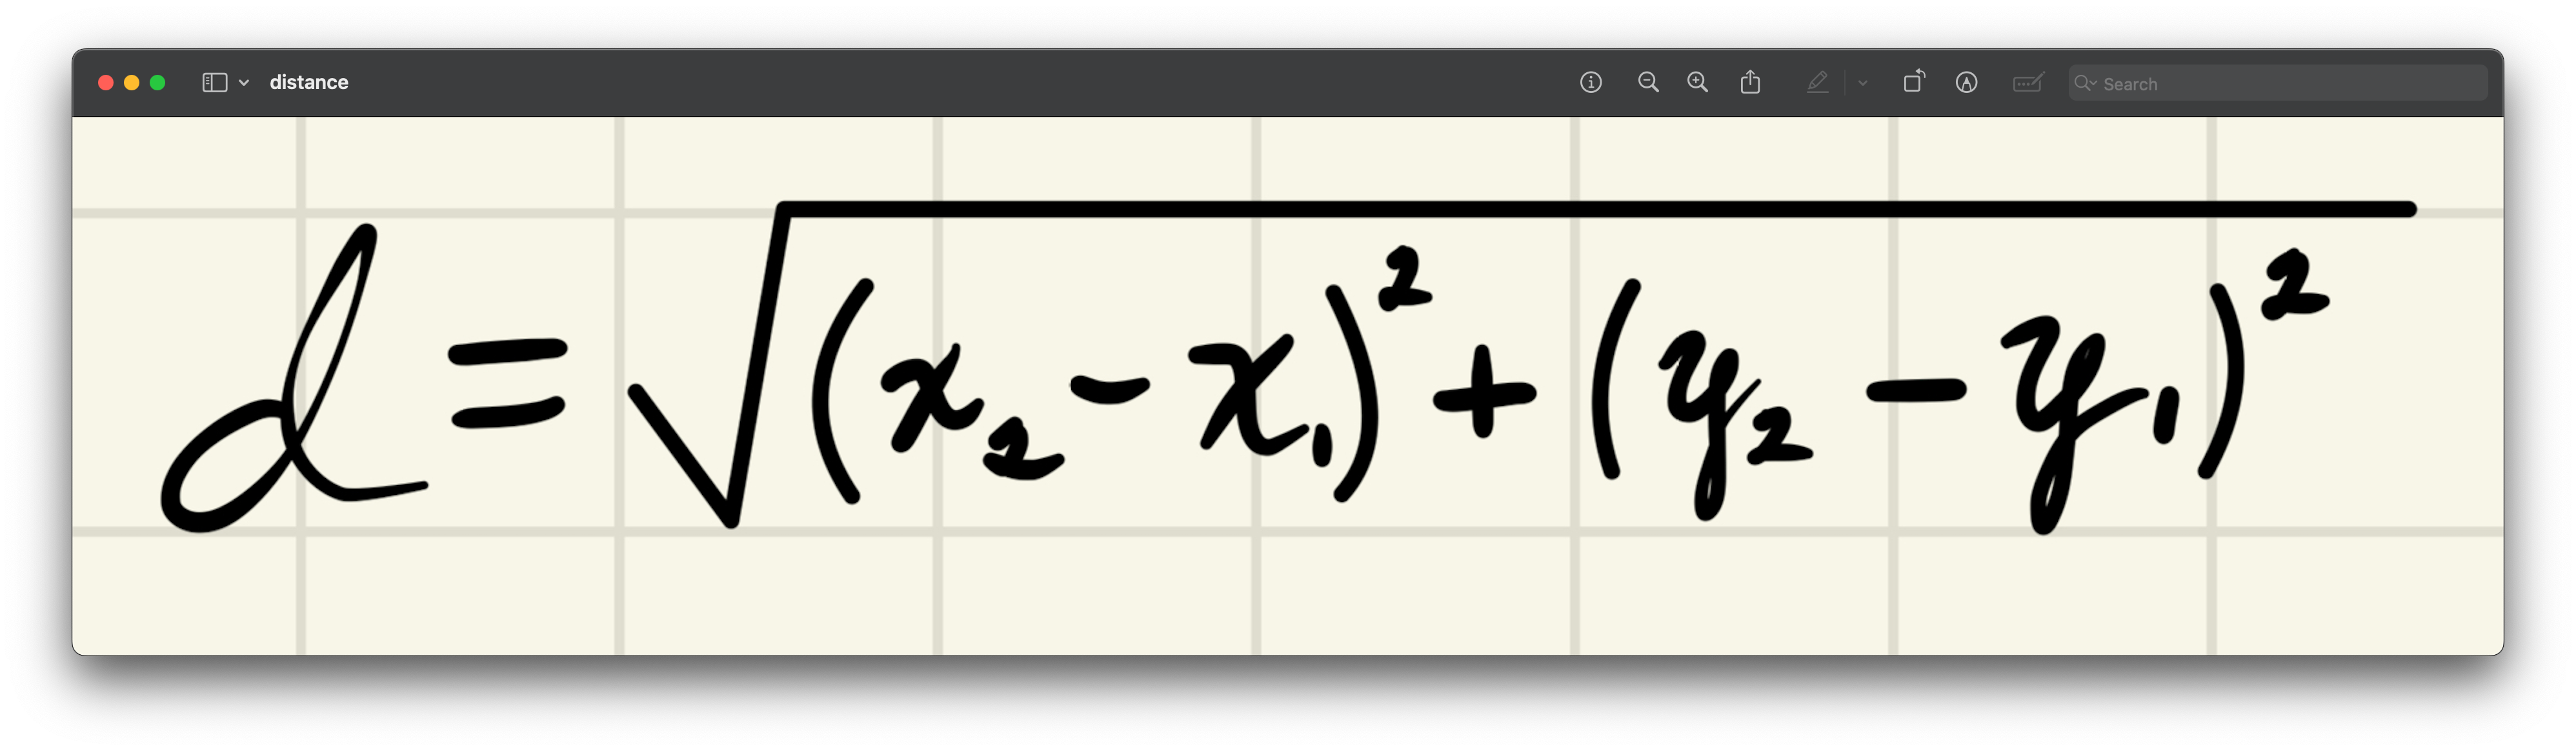 distance Search
d = √((x₂ - x₁)² + (y₂ - y₁)²)